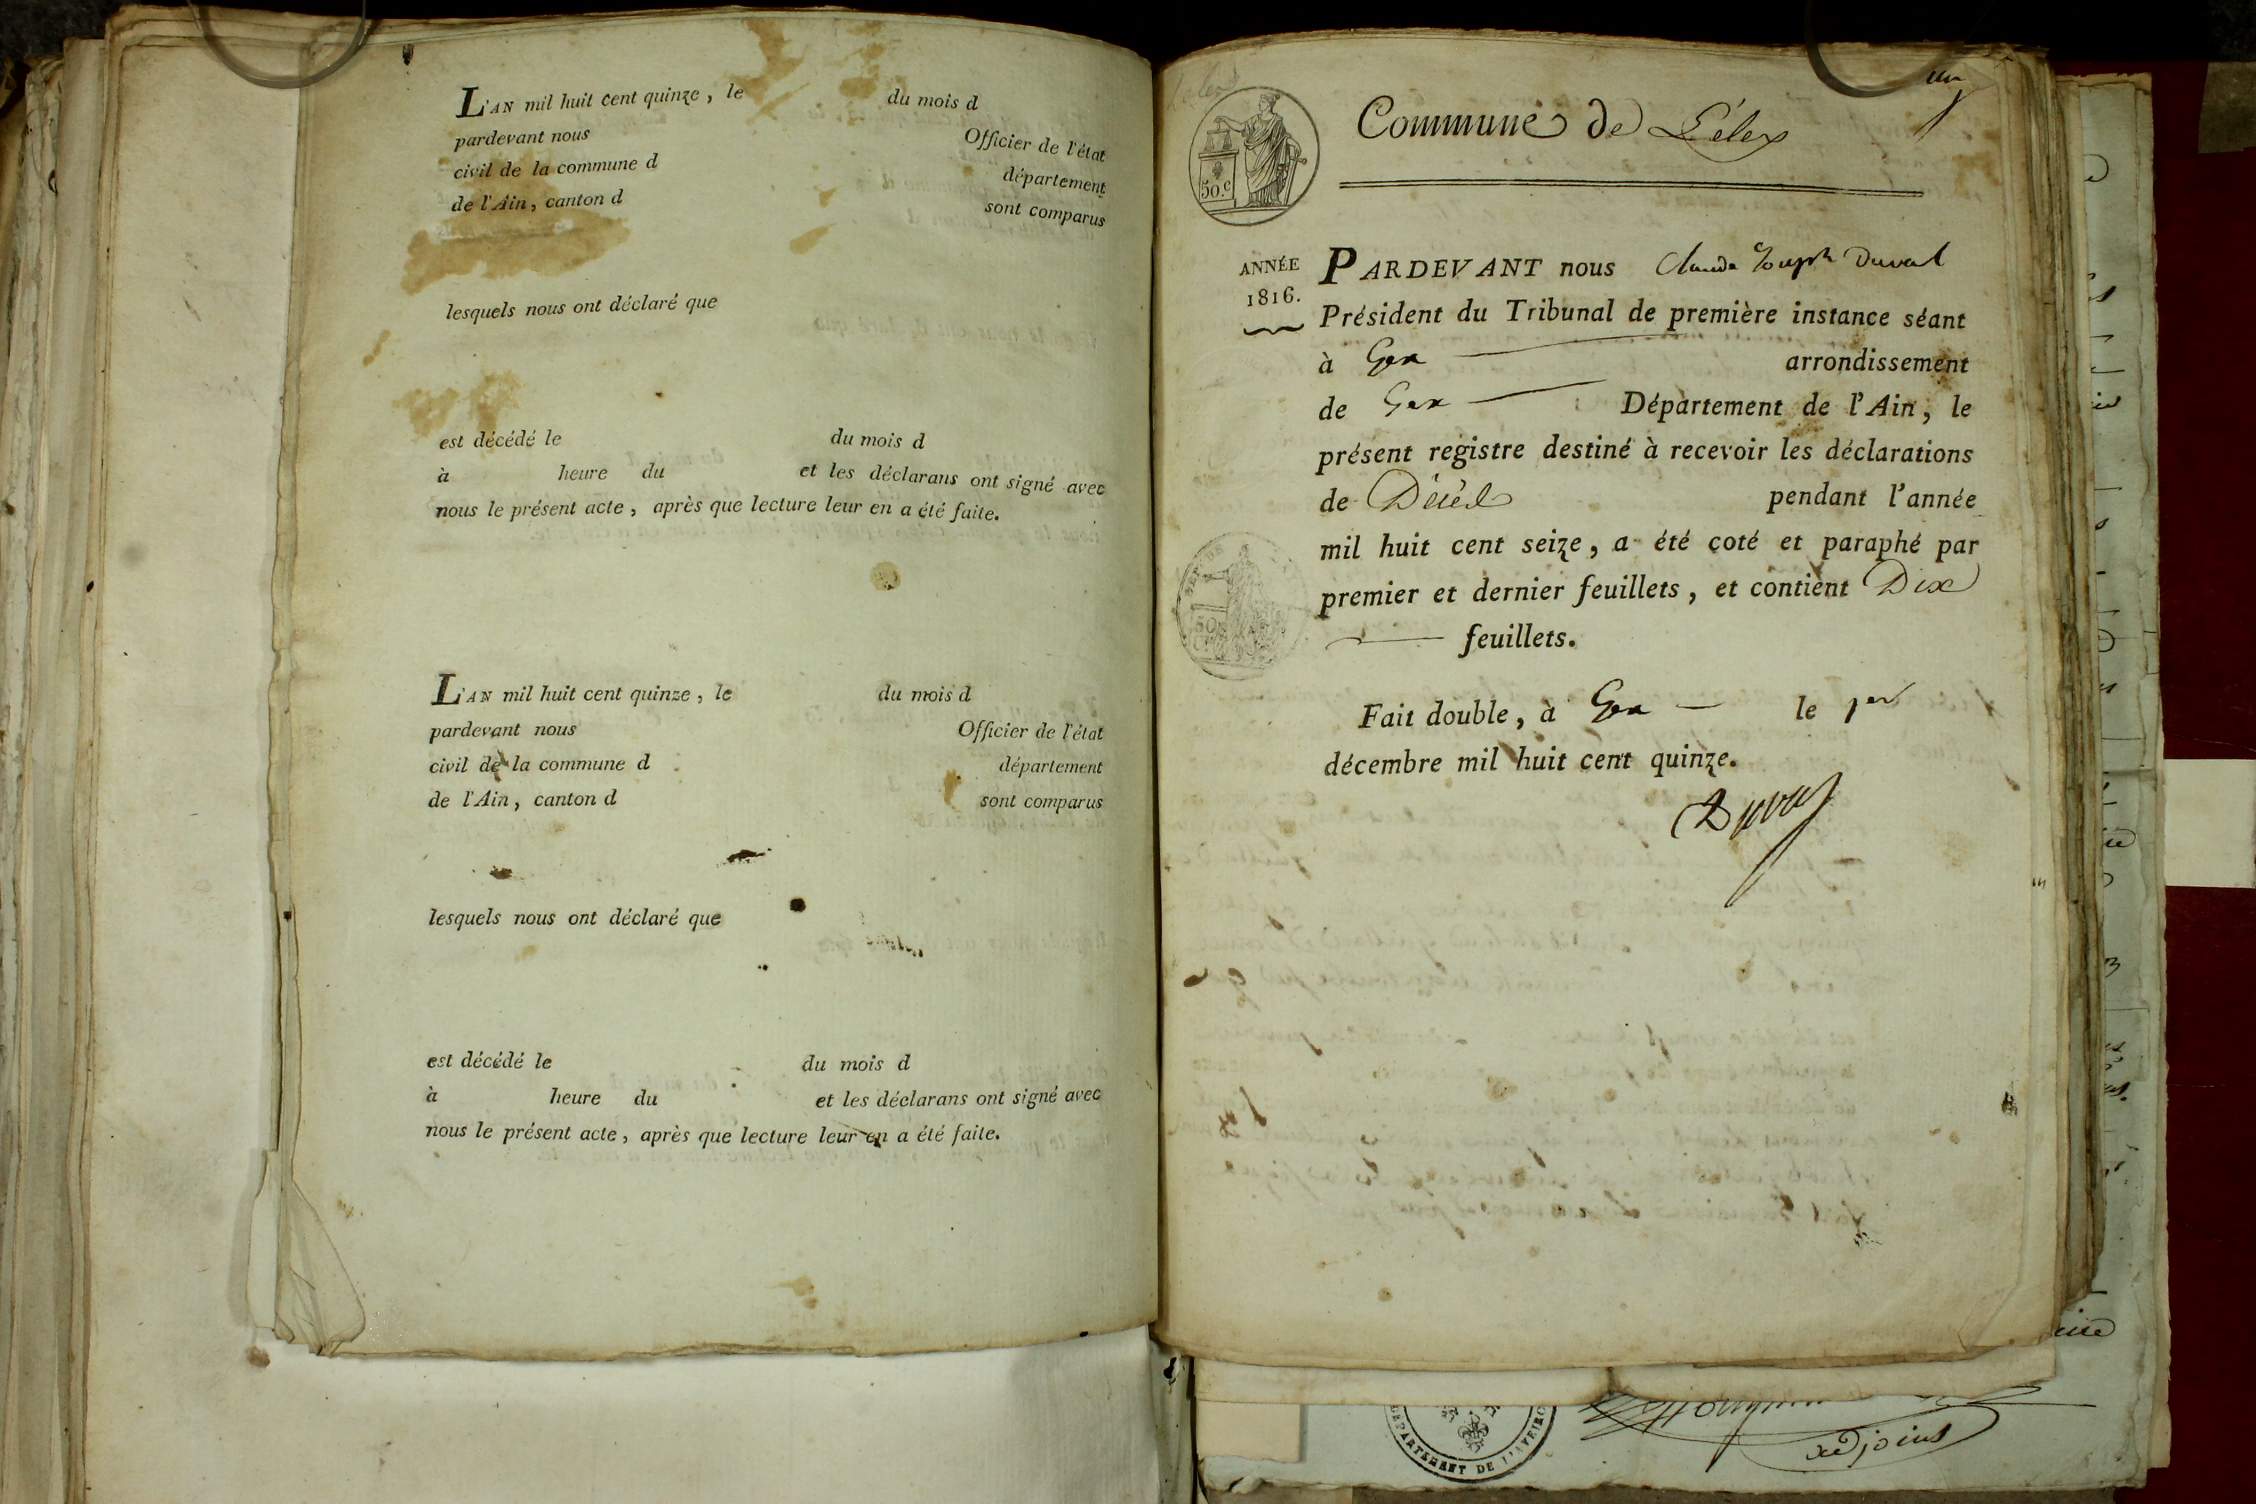 L'AN mil huit cent quinze, le du mois d
pardevant nous Officier de l'état
civil de la commune d département
de l'Ain, canton d sont comparus
lesquels nous ont déclaré que
est décédé le du mois d
à heure du et les déclarans ont signé avec
nous le présent acte, après que lecture leur en a été faite.
L'AN mil huit cent quinze, le du mois d
pardevant nous Officier de l'état
civil de la commune d département
de l'Ain, canton d sont comparus
lesquels nous ont déclaré que
est décédé le du mois d
à heure du et les déclarans ont signé avec
nous le présent acte, après que lecture leur en a été faite.
un
Commune de Lélex
50.c
ANNÉE
1816.
PARDEVANT nous Claude Joseph Duval
Président du Tribunal de première instance séant
à Gex arrondissement
de Gex Département de l'Ain, le
présent registre destiné à recevoir les déclarations
de Décès pendant l'année
mil huit cent seize, a été coté et paraphé par
premier et dernier feuillets, et contient Dix
feuillets.
Fait double, à Gex le 1er
décembre mil huit cent quinze.
Duval
DEPARTEMENT DE L'AVEYRON
adjoint